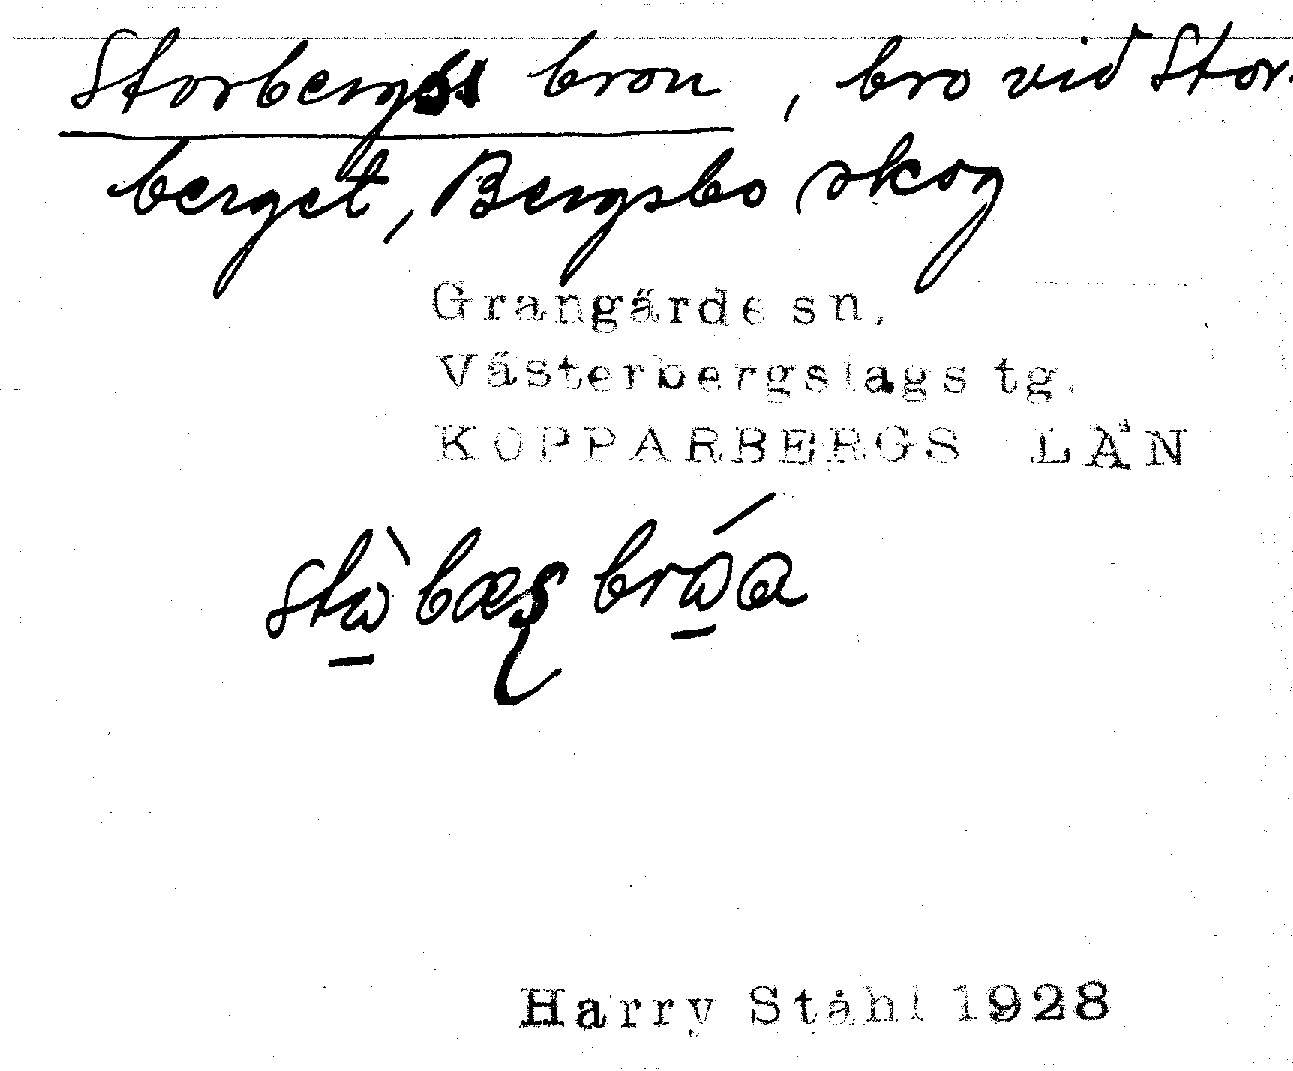 Storbergs bron, bro vid Stor-
berget, Bergsbo skog
Grangärde sn.
Västerbergslags tg.
KOPPARBERGS LÄN
Harry Ståhl 1928